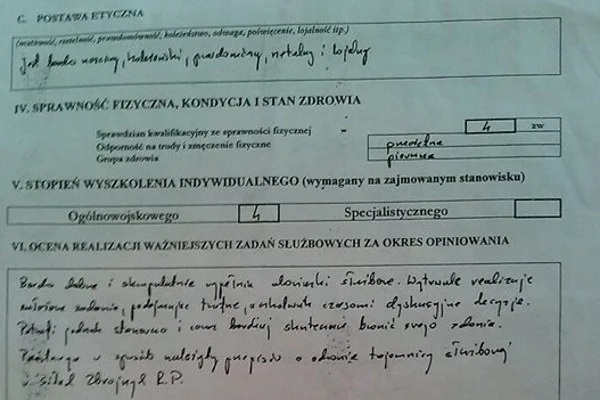 C. POSTAWA ETYCZNA
(uczciwość, rzetelność, prawdomówność, koleżeństwo, odwaga, poświęcenie, lojalność itp.)
Jest bardzo uczciwy, koleżeński, prawdomówny, rzetelny i lojalny
IV. SPRAWNOŚĆ FIZYCZNA, KONDYCJA I STAN ZDROWIA
Sprawdzian kwalifikacyjny ze sprawności fizycznej - 4 zw
Odporność na trudy i zmęczenie fizyczne przeciętna
Grupa zdrowia pierwsza
V. STOPIEŃ WYSZKOLENIA INDYWIDUALNEGO (wymagany na zajmowanym stanowisku)
Ogólnowojskowego 4 Specjalistycznego
VI. OCENA REALIZACJI WAŻNIEJSZYCH ZADAŃ SŁUŻBOWYCH ZA OKRES OPINIOWANIA
Bardzo dobrze i skrupulatnie wypełnia obowiązki służbowe. Wytrwale realizuje
zadania, podejmując trafne, aczkolwiek czasami dyskusyjne decyzje.
Potrafi jednak stanowczo i coraz bardziej skutecznie bronić swego zdania.
Przestrzega w sposób należyty przepisów o ochronie tajemnicy służbowej
w Siłach Zbrojnych R.P.